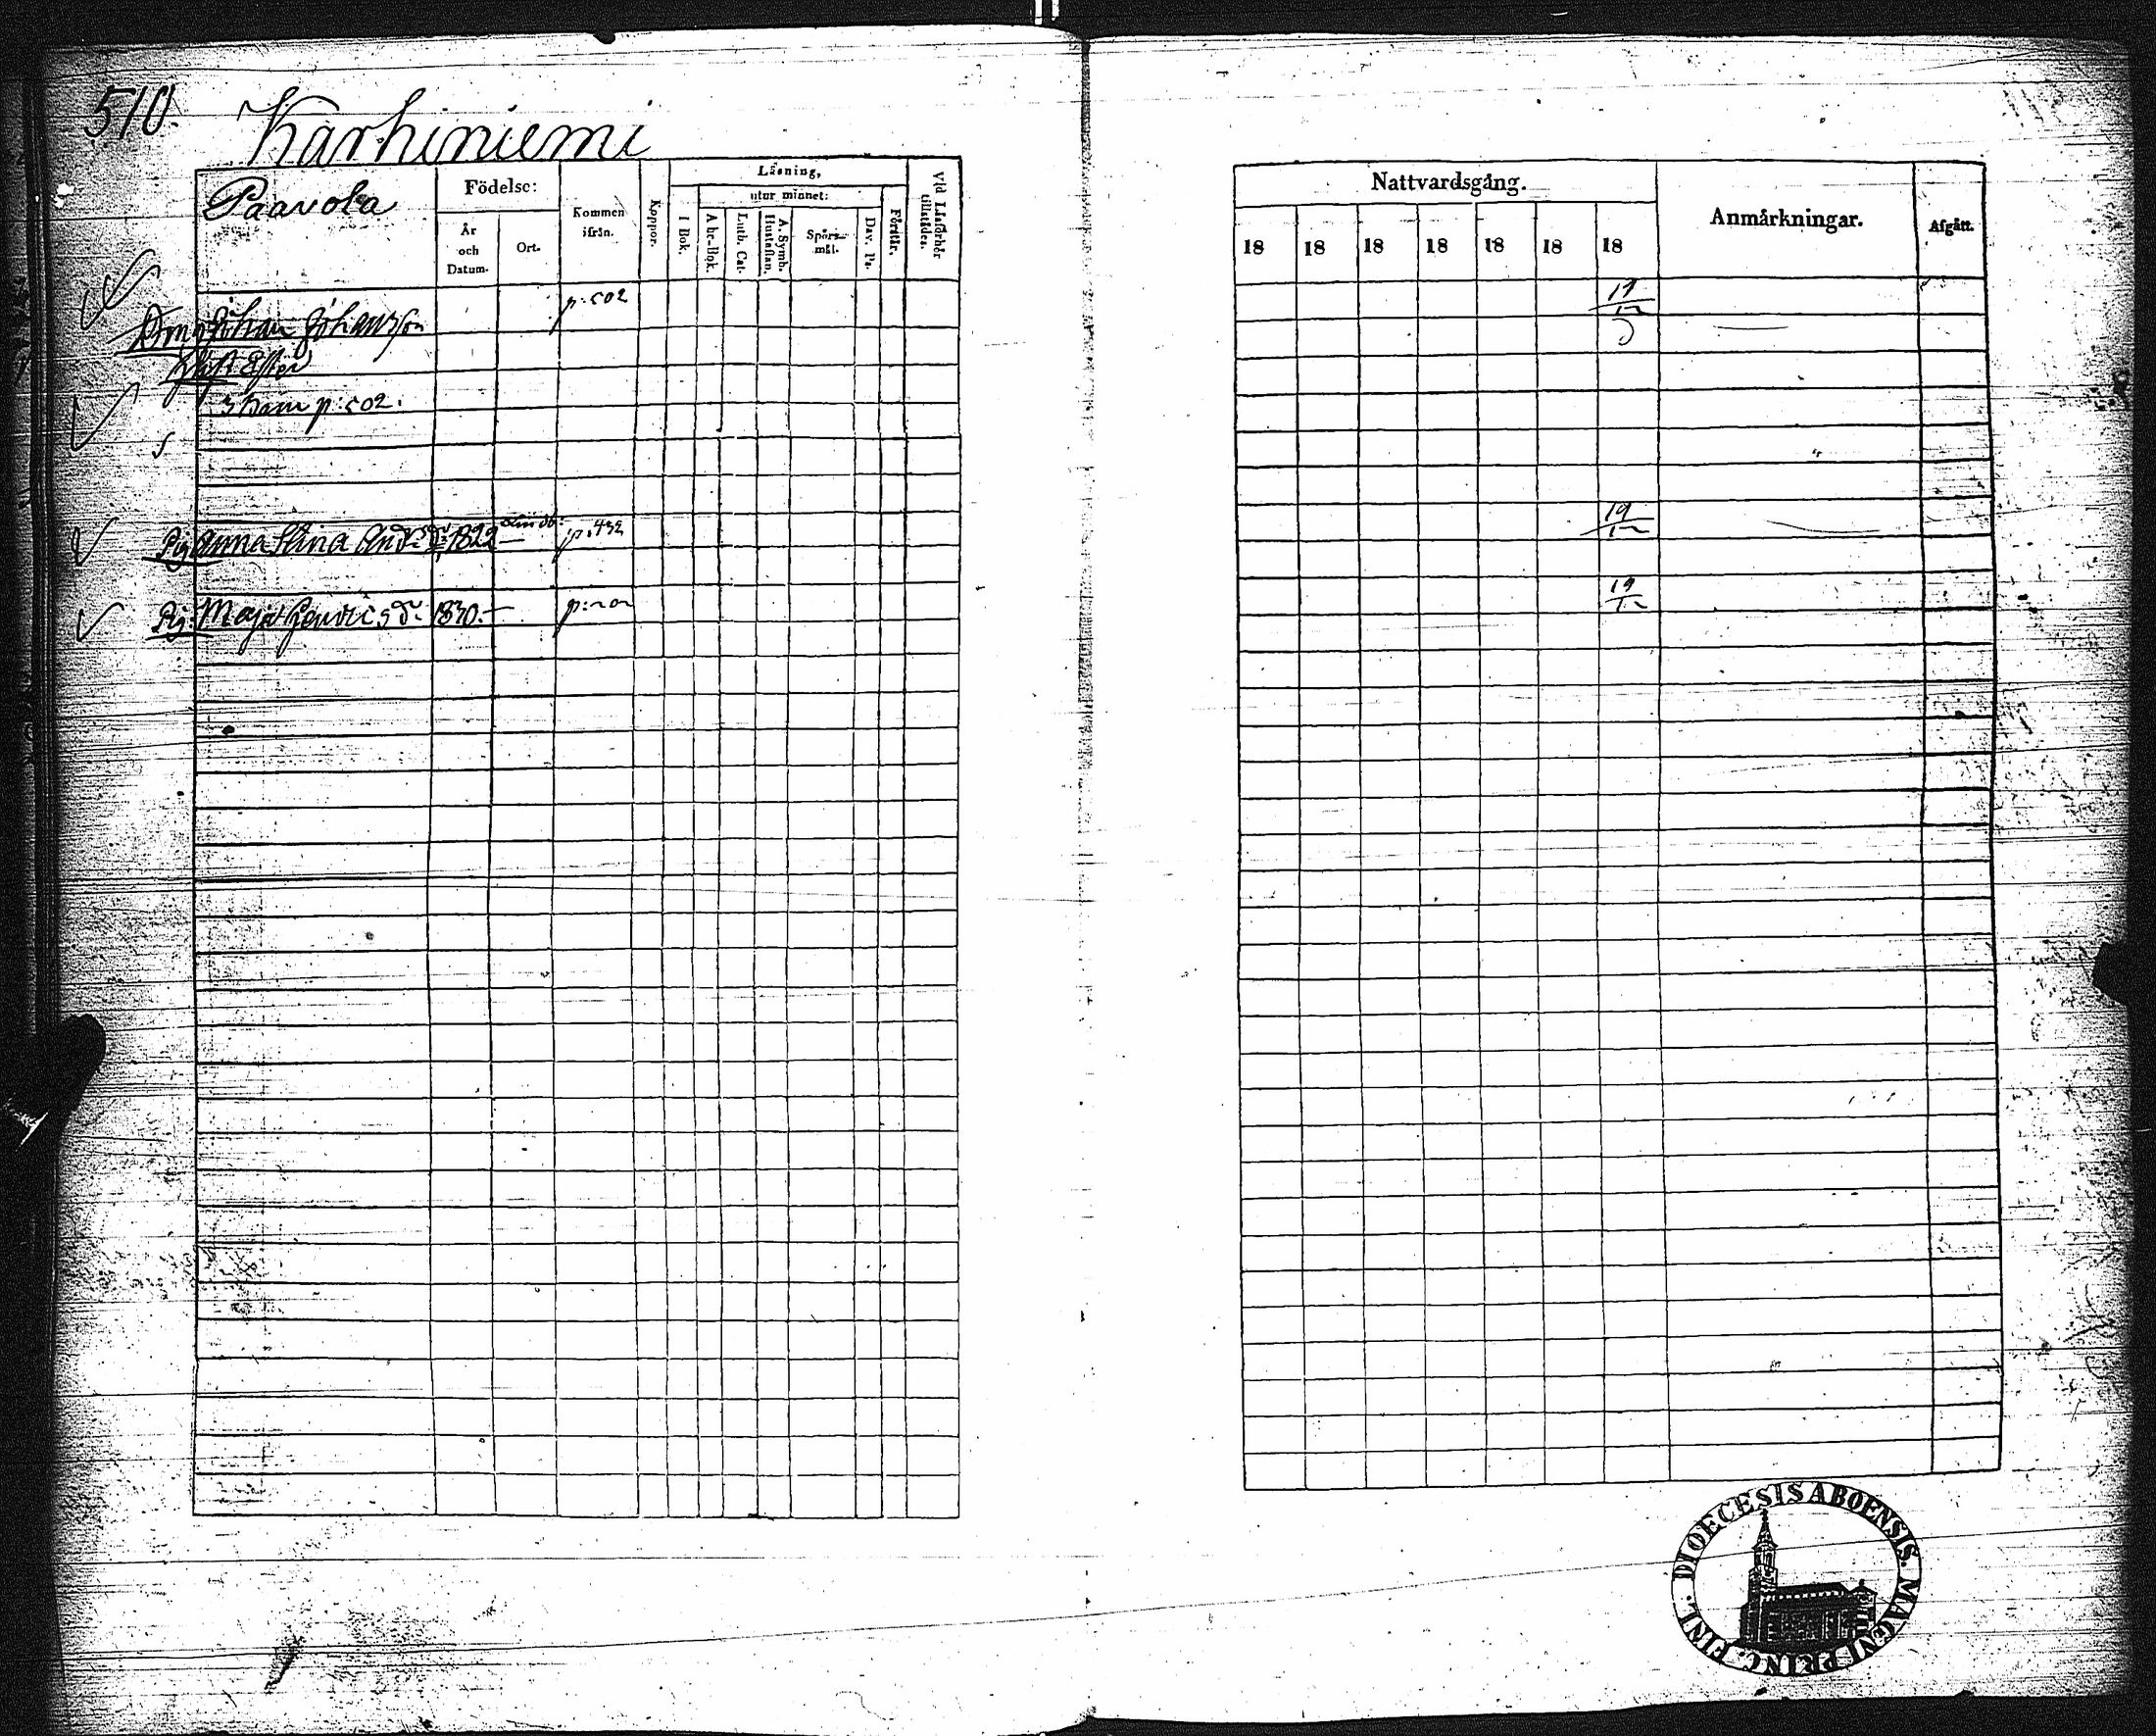 510.
Karhiniemi
Paavola
Födelse:
År och Datum.
Ort.
Kommen ifrån.
Koppor.
Läsning,
utur minnet:
I Bok.
A b c-Bok.
Luth. Cat.
A. Symb. Hustaflan.
Spörs-mål.
Dav. Ps.
Förstår.
Vid Läsförhör tillstädes.
Johan Johansson p: 502
Hust
3 barn p: 502.
Pig Anna Stina And: dr 1822 p: 432
Pig. Maja Henrics dr 1830.
Nattvardsgång.
18 18 18 18 18 18 18
Anmärkningar.
Afgått.
19
19
19
DIOECESIS ABOENSIS. MAGNI PRINC. FINL.